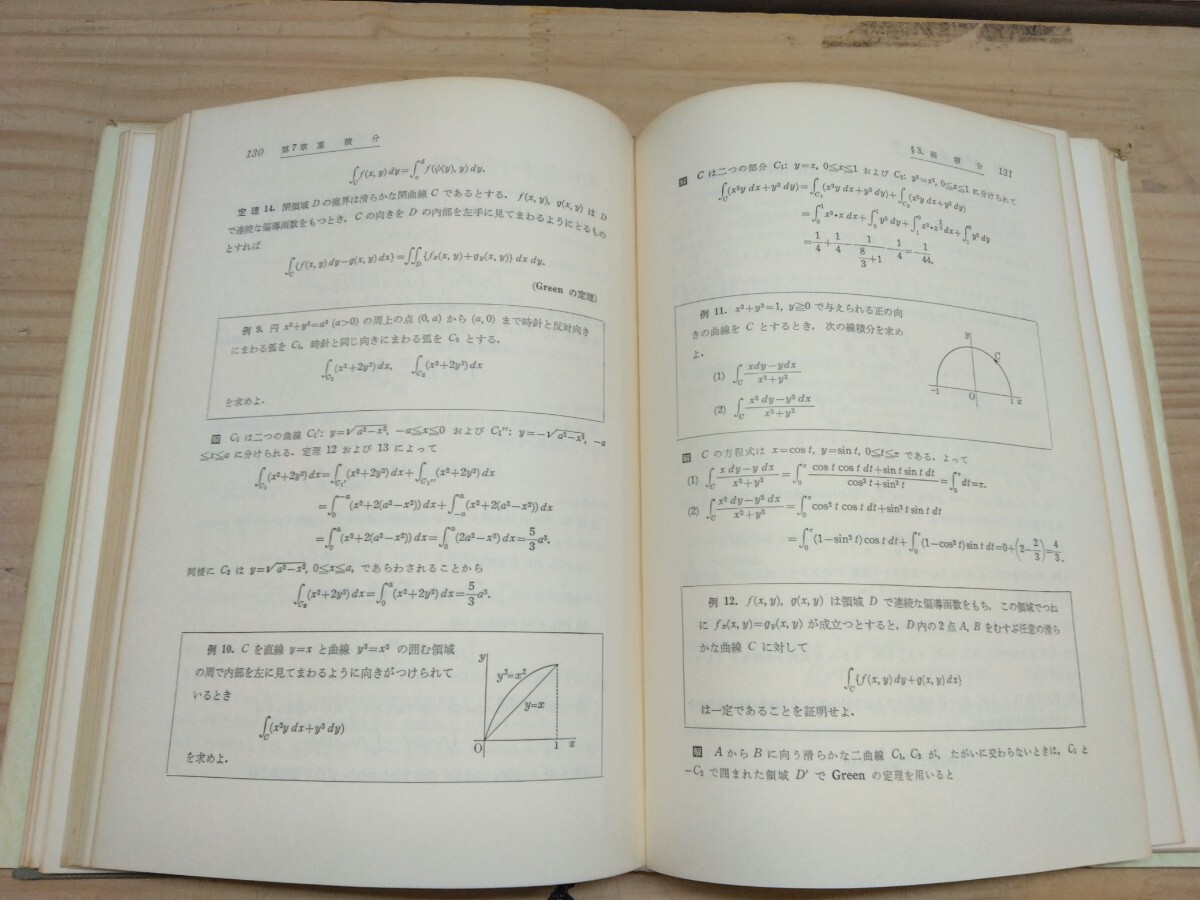 130 第7章 重 積 分
∫_C f(x, y) dy=∫_c^d f(ψ(y), y) dy.
定理 14. 閉領域 D の境界は滑らかな閉曲線 C であるとする. f(x, y), g(x, y) は D
で連続な偏導函数をもつとき, C の向きを D の内部を左手に見てまわるようにとるものとすれば
∫_C {f(x, y) dy−g(x, y) dx}=∬_D {f_x(x, y)+g_y(x, y)} dx dy.
(Green の定理)
例 9. 円 x²+y²=a² (a>0) の周上の点 (0, a) から (a, 0) まで時計と反対向き
にまわる弧を C₁, 時計と同じ向きにまわる弧を C₂ とする.
∫_{C₁} (x²+2y²) dx, ∫_{C₂} (x²+2y²) dx
を求めよ.
解 C₁ は二つの曲線 C₁′: y=√(a²−x²), −a≦x≦0 および C₁″: y=−√(a²−x²), −a
≦x≦a に分けられる. 定理 12 および 13 によって
∫_{C₁} (x²+2y²) dx=∫_{C₁′} (x²+2y²) dx+∫_{C₁″} (x²+2y²) dx
=∫_0^{−a} (x²+2(a²−x²)) dx+∫_{−a}^a (x²+2(a²−x²)) dx
=∫_0^a (x²+2(a²−x²)) dx=∫_0^a (2a²−x²) dx=5/3 a³.
同様に C₂ は y=√(a²−x²), 0≦x≦a, であらわされることから
∫_{C₂} (x²+2y²) dx=∫_0^a (x²+2y²) dx=5/3 a³.
例 10. C を直線 y=x と曲線 y³=x² の囲む領域
の周で内部を左に見てまわるように向きがつけられて
いるとき
∫_C (x²y dx+y³ dy)
を求めよ.
y
y³=x²
y=x
O 1 x
§3. 線 積 分 131
解 C は二つの部分 C₁: y=x, 0≦x≦1 および C₂: y³=x², 0≦x≦1 に分けられて
∫_C (x²y dx+y³ dy)=∫_{C₁} (x²y dx+y³ dy)+∫_{C₂} (x²y dx+y³ dy)
=∫_0^1 x²•x dx+∫_0^1 y³ dy+∫_1^0 x²•x^{2/3} dx+∫_1^0 y³ dy
=1/4+1/4−1/(8/3+1)−1/4=−1/44.
例 11. x²+y²=1, y≧0 で与えられる正の向
きの曲線を C とするとき, 次の線積分を求め
よ.
(1) ∫_C (xdy−ydx)/(x²+y²)
(2) ∫_C (x² dy−y² dx)/(x²+y²)
y
C
−1 O 1 x
解 C の方程式は x=cos t, y=sin t, 0≦t≦π である. よって
(1) ∫_C (x dy−y dx)/(x²+y²)=∫_0^π (cos t cos t dt+sin t sin t dt)/(cos² t+sin² t)=∫_0^π dt=π.
(2) ∫_C (x² dy−y² dx)/(x²+y²)=∫_0^π cos² t cos t dt+sin² t sin t dt
=∫_0^π (1−sin² t) cos t dt+∫_0^π (1−cos² t) sin t dt=0+(2−2/3)=4/3.
例 12. f(x, y), g(x, y) は領域 D で連続な偏導函数をもち, この領域でつね
に f_x(x, y)=g_y(x, y) が成立つとすると, D内の2点 A, B をむすぶ任意の滑ら
かな曲線 C に対して
∫_C {f(x, y) dy+g(x, y) dx}
は一定であることを証明せよ.
解 A から B に向う滑らかな二曲線 C₁, C₂ が, たがいに交わらないときは, C₁ と
−C₂ で囲まれた領域 D′ で Green の定理を用いると